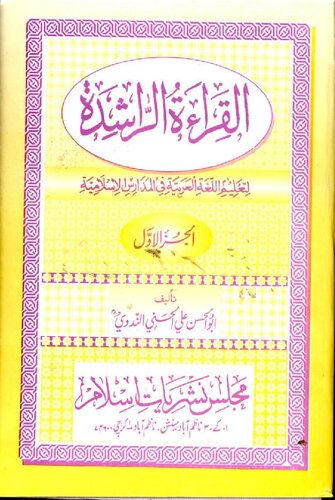 القراءة الراشدة
لتعليم اللغة العربية في المدارس الإسلامية
الجزء الاول
تأليف
ابو الحسن علي الحسني الندوي
مجلس نشریات اسلام
۱۔کے۔۳ ناظم آباد مینشن، ناظم آباد ۱ کراچی ۷۴۶۰۰